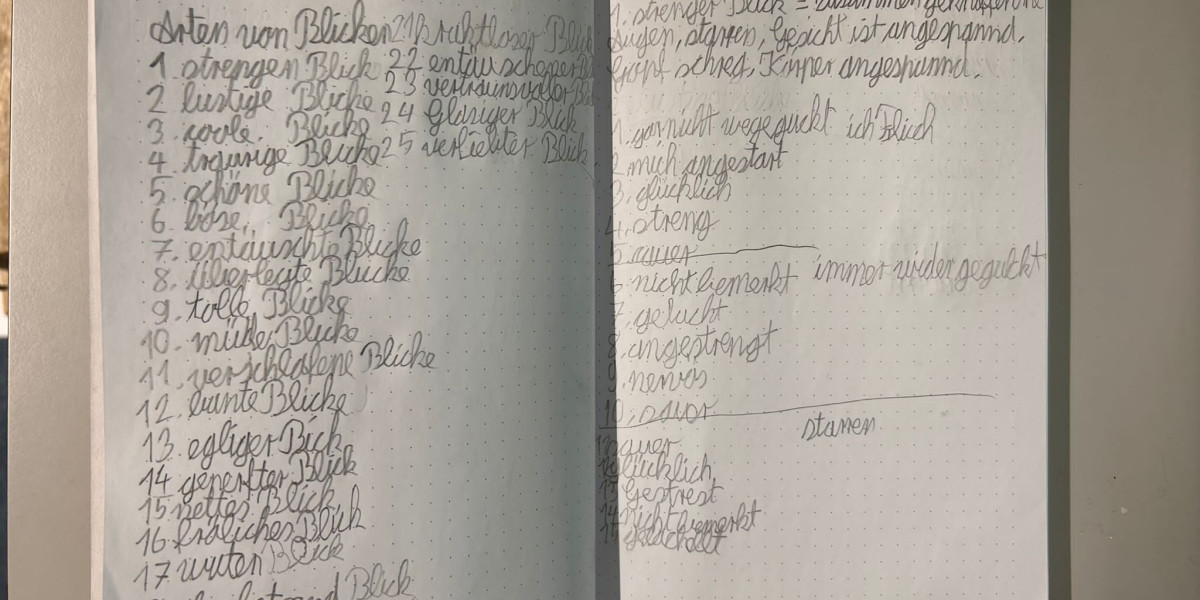 Arten von Blicken
1. strengen Blick
2 lustige Blicke
3. coole. Blicke
4. traurige Blicke
5. schöne Blicke
6. böse. Blicke
7. entäuschte Blicke
8. überlegte Blicke
9. tolle Blicke
10. müde Blicke
11. verschlafene Blicke
12. bunte Blicke
13. egliger Bick
14 generfter Blick
15 nettes Blick
16. fröliches Blick
17 wuten Blick
Blick
21 kraftloser Blick
22 entäuschener
23 vertraunsvoler
24 Glasiger Blick
25 verliebter Blick
1. strenger Blick = zusammengekniffene
Augen, starren, Gesicht ist angespannd,
Kopf schreg, Körper angespannd.
1. gar nicht wegeguckt ich Blich
2 mich angestart
3. glücklich
4. streng
5. sauer
6 nicht bemerkt immer wider geguckt
7. gelacht
8. angestrengt
9. nervös
10. sauer
starren
sauer
glücklich
Gestrest
nicht bemerkt